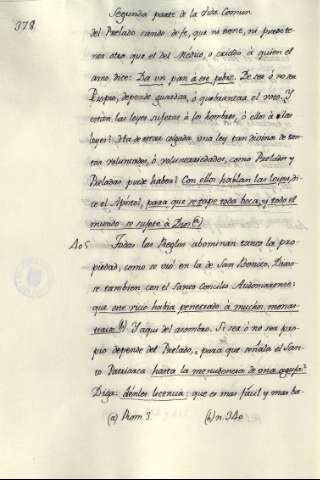 378.
Segunda parte de la vida Comun
del Prelado cando de fe, que ni tiene, ni puede te-
ner otro que el del Medico, o criado à quien el
amo dice: Da un pan à ese pobre. De sea ò no sea
Propio, depende guardar, ò quebrantar el voto. Y
estàn las leyes sujetas à los hombres, ò ellos à las
leyes? Ha de estar colgada una ley tan divina de tan-
tas voluntades, ò voluntariedades, como Prelados y
Preladas puede haber? Con ellos hablan las leyes, di-
ce el Apóstol, para que se tape toda boca, y todo el
mundo se sujete à Dios (a)
405 Todas las Reglas abominan tanto la pro-
piedad, como se viò en la de San Benito. Dirà-
se tambien con el Santo Concilio
que este vicio habia penetrado à muchos monas-
terios (b) Y aqui del asombro. Si sea ò no sea pro-
pio depende del Prelado, para que señala el San-
to Patriarca hasta la menudencia de una aguja?
Diga: denles licencia: que es mas fácil y mas ba-
(a) Rom. 3. (b) n. 340.